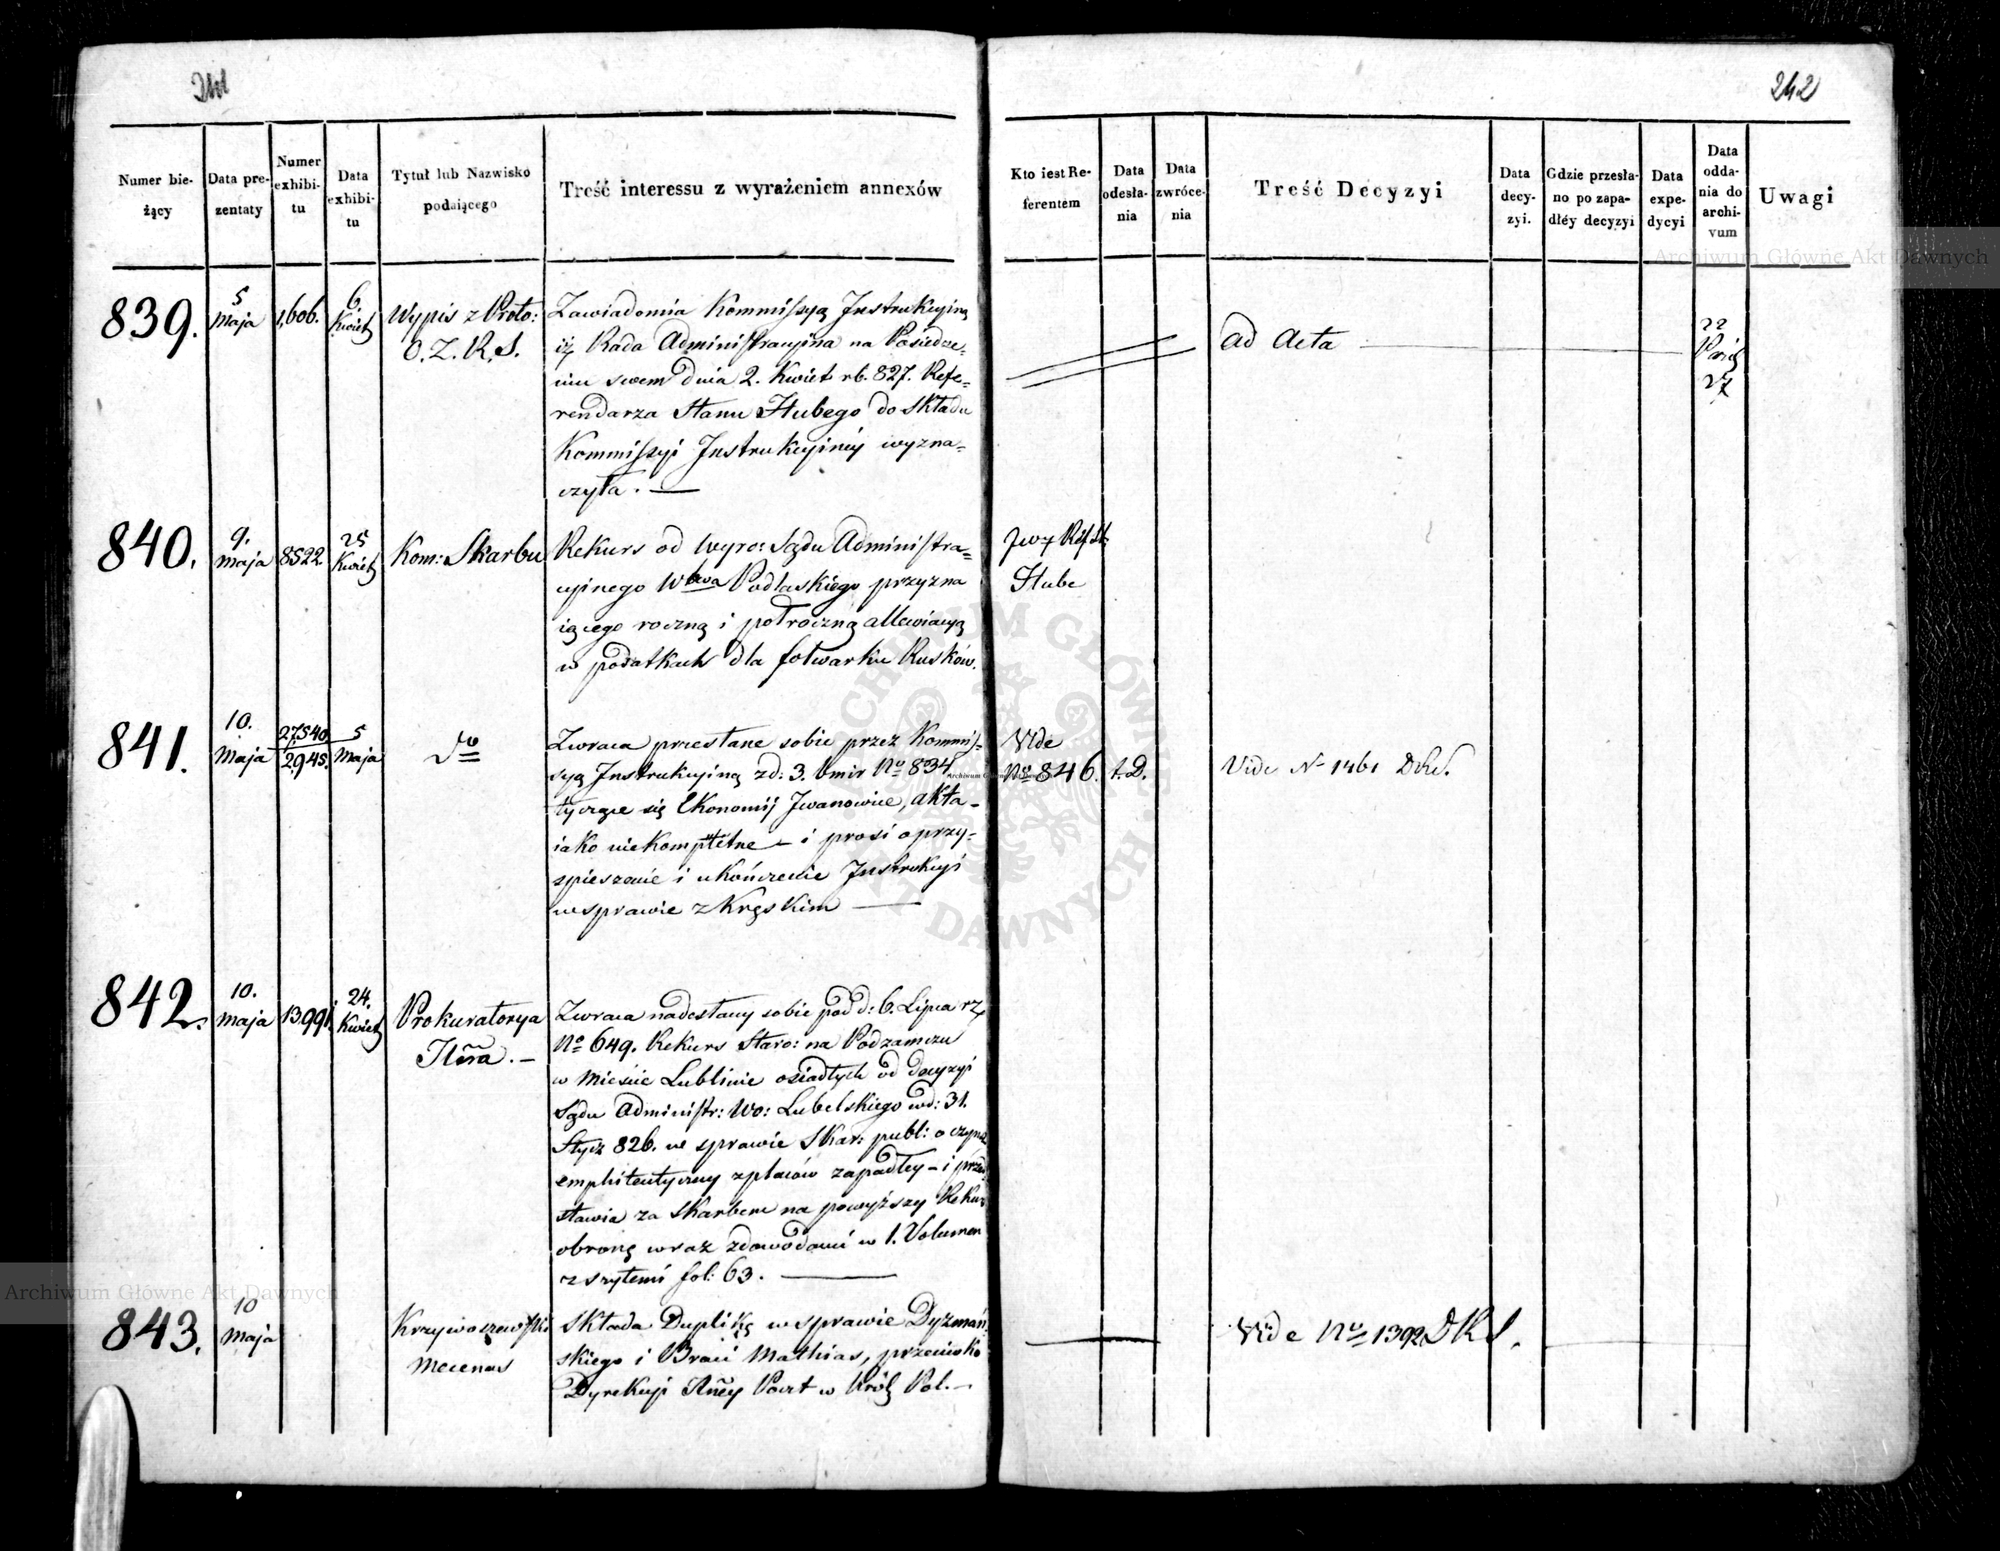 241
242
Numer bie-
żący
Data pre-
zentaty
Numer
exhibi-
tu
Data
exhibi-
tu
Tytuł lub Nazwisko
podaiącego
Treść interessu z wyrażeniem annexów
Kto iest Re-
ferentem
Data
odesła-
nia
Data
zwróce-
nia
Treść Decyzyi
Data
decy-
zyi.
Gdzie przesła-
no po zapa-
dłéy decyzyi
Data
expe-
dycyi
Data
odda-
nia do
archi-
vum
Uwagi
839.
5
Maja
1,606.
6
Kwiet
Wypis z Proto:
O. Z. R. S.
Zawiadomia Kommissyą Instrukcyiną
iż Rada Administracyina na Posiedze-
niu swem dnia 2. Kwiet rb. 827. Refe-
rendarza Stanu Hubego do składu
Kommissyi Instrukcyinéy wyzna-
czyła. —
ad Acta
22
27
840.
9.
Maja
8522
25
Kwiet
Kom: Skarbu
Rekurs od Wyro: Sądu Administra-
cyinego Wbwa Podlaskiego przyzna
iącego roczną i półroczną allewiacyą
w podatkach dla folwarku Rusków.
Hube
841.
10.
Maja
27540
2945.
5
Maja
Do
Zwraca przesłane sobie przez Kommis-
syą Instrukcyiną zd: 3. bmir No 834
tyczące się Ekonomij Iwanowice, akta-
iako niekompletne – i prosi o przy-
spieszenie i ukończenie Instrukcyi
w sprawie z Kręskim —
Vide
No 846.
t. D.
Vide N 1461
842.
10.
Maja
13991.
24.
Kwiet
Prokuratorya
Jlna. –
Zwraca nadesłany sobie pod d: 6. Lipca rz
No 649. Rekurs Staro: na Podzamczu
w Mieście Lublinie osiadłych od decyzyi
Sądu Administr: Wo: Lubelskiego wd: 31.
Stycz 826. w sprawie Skar: publ: o czynsz
emphiteutyczny z placów zapadłey – i przed
stawia za Skarbem na powyższy Rekurs
obronę wraz z dowodami w 1. Volumen
zszytemi fol: 63. —
843.
10
Maja
Krzywoszewski
Mecenas
Składa Duplikę w sprawie Dyzmań-
skiego i Braci Mathias, przeciwko
Dyrekcyi Jlney Poczt w Król Pol. –
Vide No 1392 DKS.
Archiwum Główne Akt Dawnych
Archiwum Główne Akt Dawnych
Archiwum Główne Akt Dawnych
ARCHIWUM GŁÓWNE AKT DAWNYCH